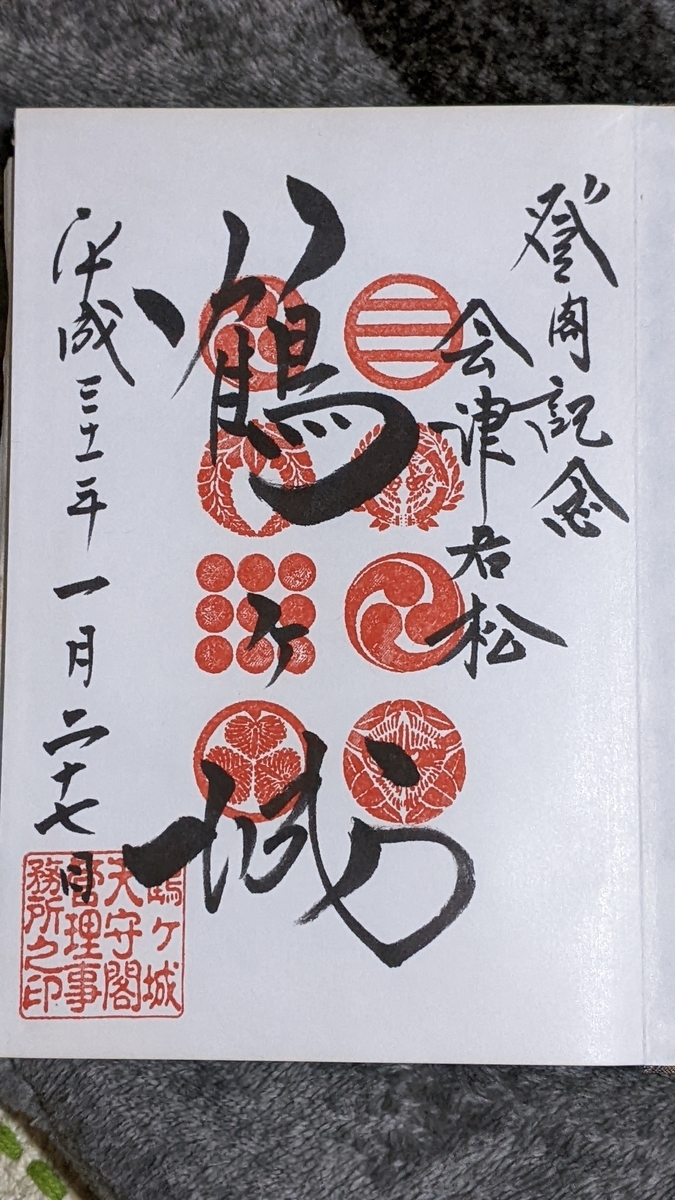 登閣記念
会津若松
鶴ヶ城
平成三十一年一月二十七日
鶴ヶ城
天守閣
管理事
務所之印